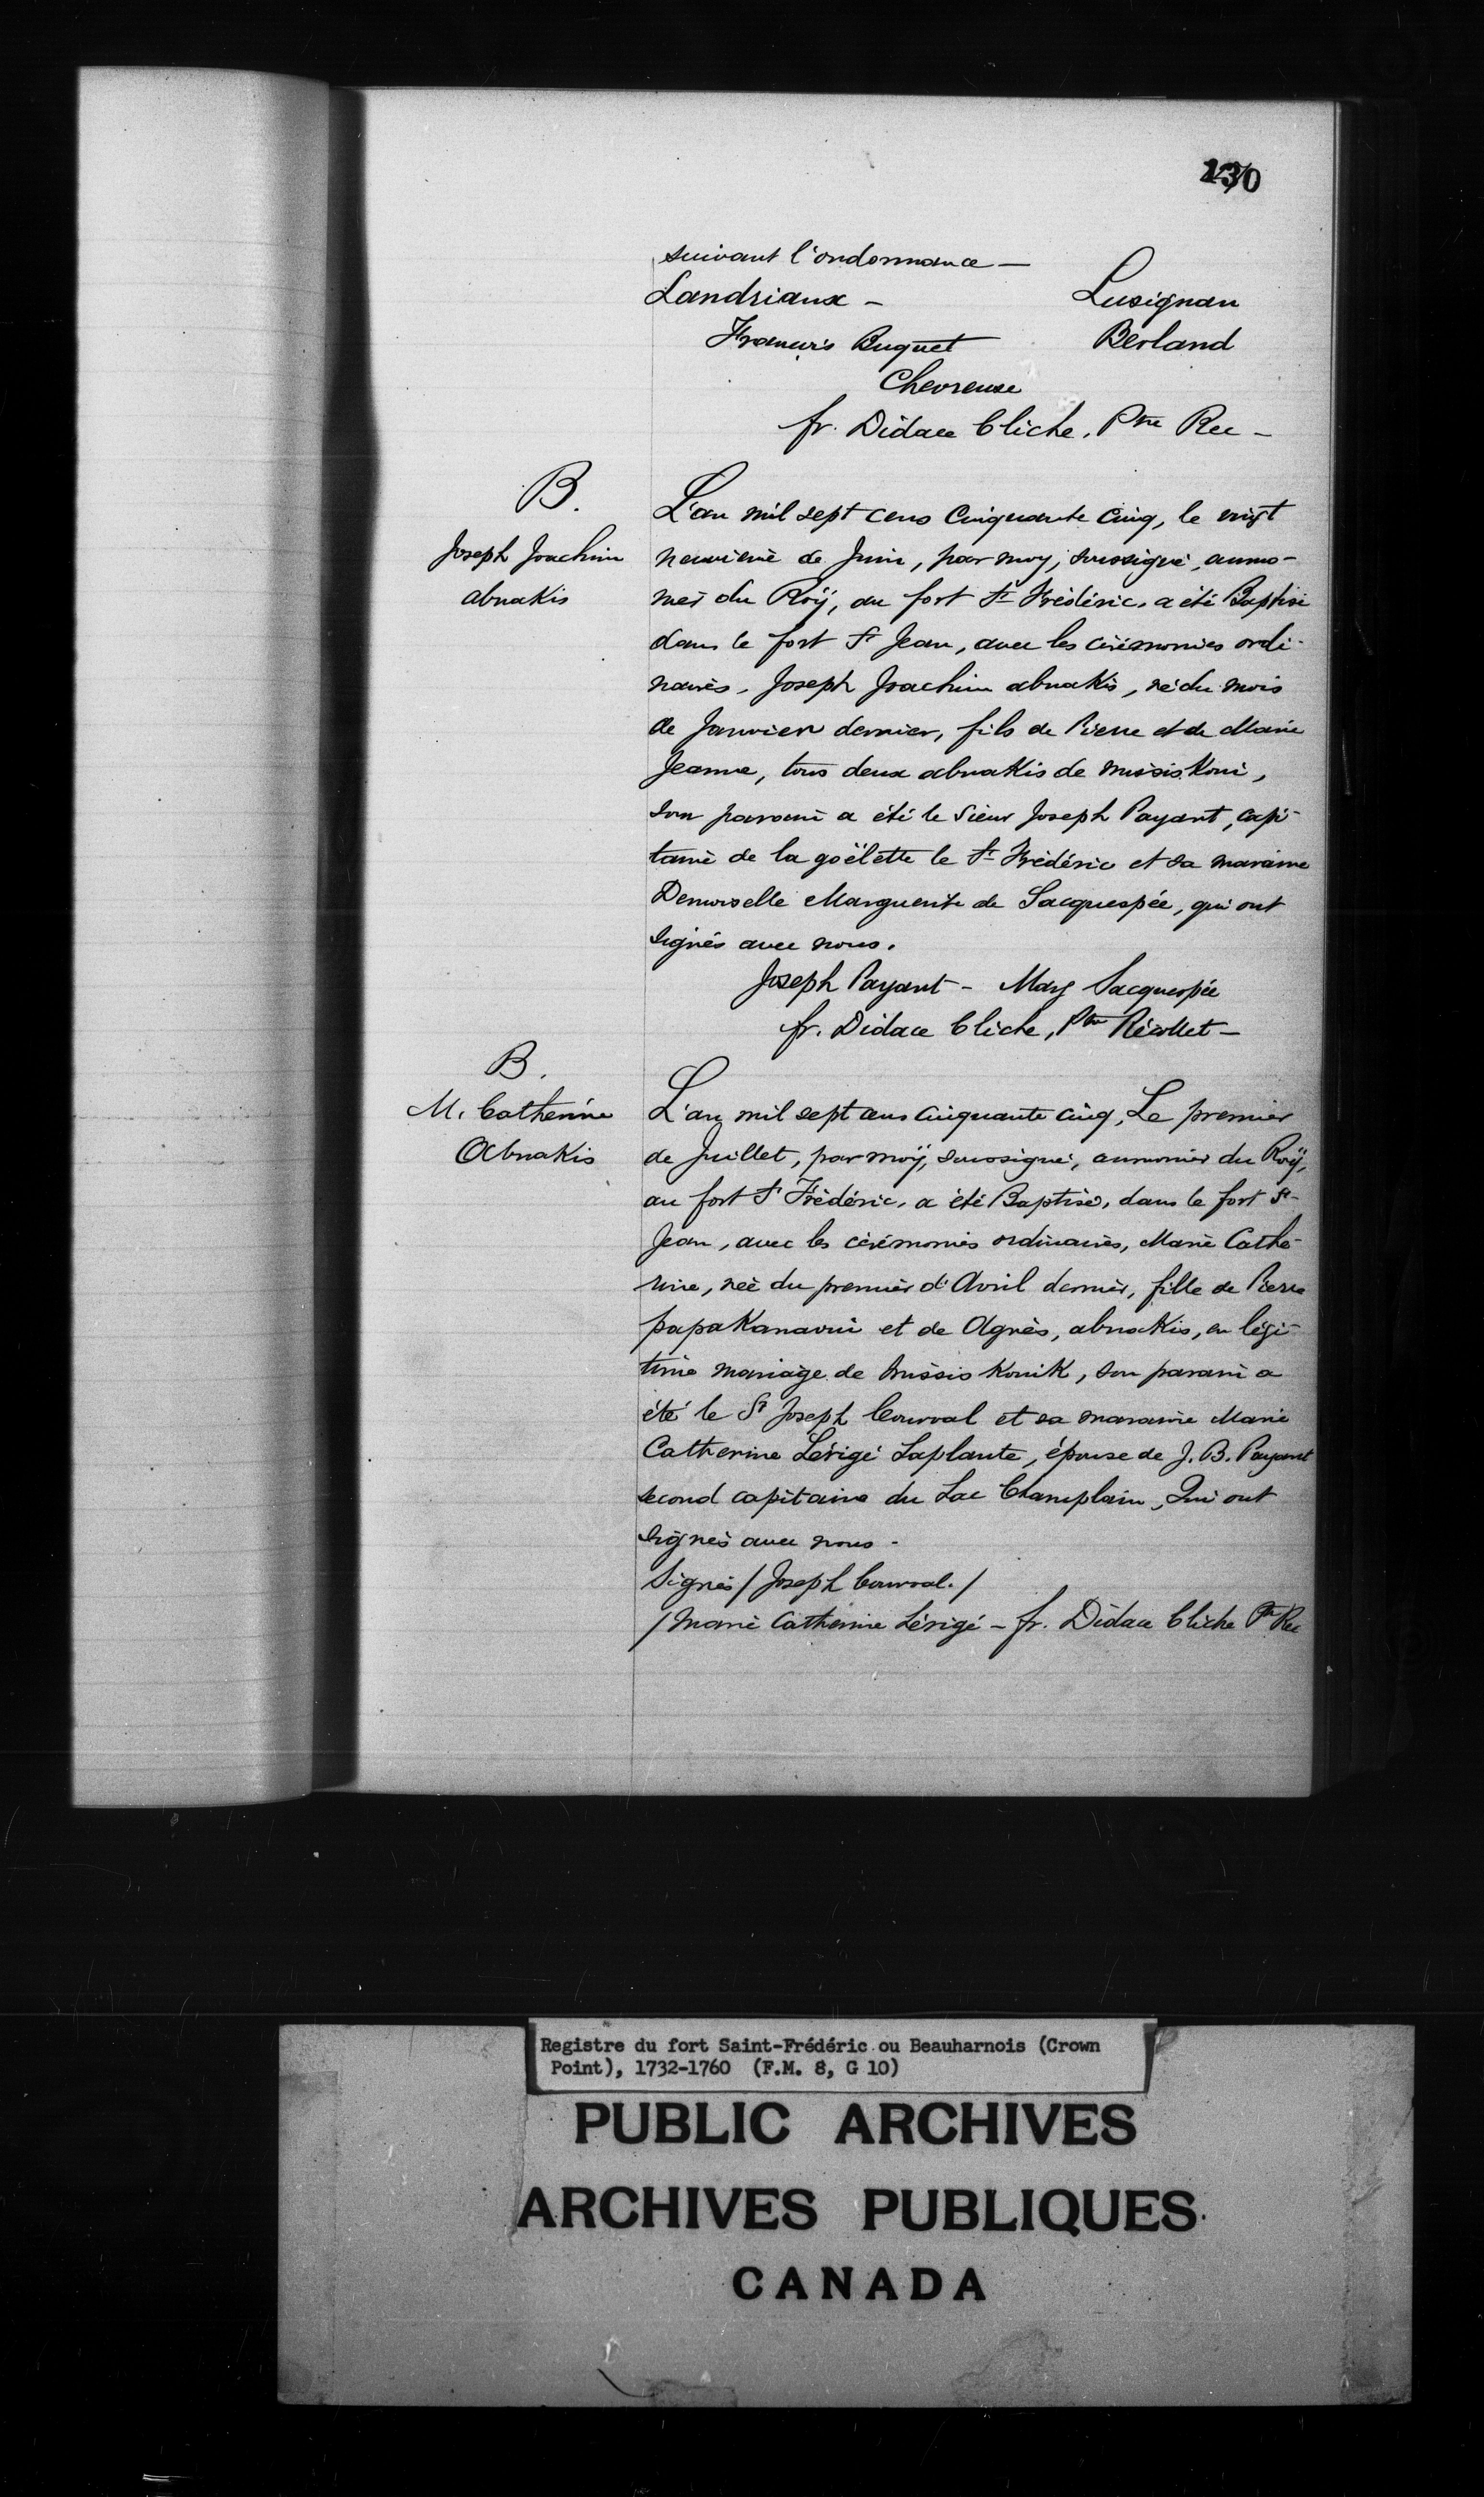 130
suivant l'ordonnance —
Landriaux - Lusignan
François Buquet Berland
Chevreuse
fr. Didace Cliche, Ptre Rec -
B.
Joseph Joachim
abnakis
L'an mil sept cens Cinquante Cinq, le vingt
neuvième de Juin, par moy, soussigné, aumo-
nier du Roÿ, au fort St Frédéric, a été Baptisé
dans le fort St Jean, avec les cérémonies ordi-
naires, Joseph Joachim abnakis, né du mois
de Janvier dernier, fils de Pierre et de Marie
Jeanne, tous deux abnakis de missiskoui,
son parain a été le Sieur Joseph Payant, capi-
taine de la goëlette le St Frédéric et sa maraine
Demoiselle Marguerite de Sacquespée, qui ont
signés avec nous.
Joseph Payant - Marg Sacquespée
fr. Didace Cliche, Ptre Récollet —
B.
M. Catherine
Abnakis
L'an mil sept cens cinquante cinq, Le premier
de Juillet, par moÿ, soussigné, aumonier du Roÿ,
au fort St Frédéric, a été Baptisée, dans le fort St
Jean, avec les cérémonies ordinaires, Marie Cathe-
rine, née du premier d'Avril dernier, fille de Pierre
papaKanaoui et de Agnès, abnakis, en légi-
time mariage de missiskouik, son parain a
été le Sr Joseph Courval et sa maraine Marie
Catherine Lérigé Laplante, épouse de J. B. Payant
second capitaine du Lac Champlain, Qui ont
signés avec nous -
Signés / Joseph Courval. /
/ Marie Catherine Lérigé - fr. Didace Cliche Ptre Rec
Registre du fort Saint-Frédéric ou Beauharnois (Crown
Point), 1732-1760 (F.M. 8, G 10)
PUBLIC ARCHIVES
ARCHIVES PUBLIQUES
CANADA